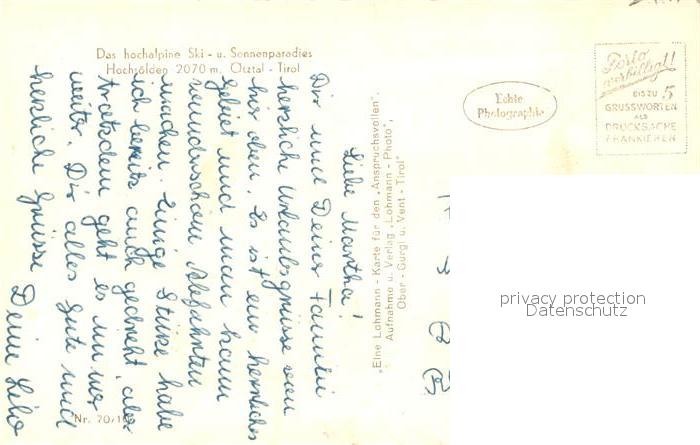 Das hochalpine Ski - u. Sonnenparadies
Hochsölden 2070 m, Ötztal - Tirol
Liebe Martha!
Dir und Deiner Familie
herzliche Urlaubsgrüsse von
hier oben. Es ist ein herrliches
gebiet und man kann
wunderschöne Abfahrten
machen. Einige Stürze habe
ich bereits auch gedreht, aber
trotzdem geht es immer
weiter. Dir alles Gute und
herzliche Grüsse
Deine
"Eine Lohmann - Karte für den „Anspruchsvollen".
Aufnahme u. Verlag „Lohmann - Photo",
Ober - Gurgl u. Vent - Tirol"
Echte
Photographie
Porto
verbilligt!
BIS ZU 5
GRUSSWORTEN
ALS
DRUCKSACHE
FRANKIEREN
privacy protection
Datenschutz
Nr. 70/